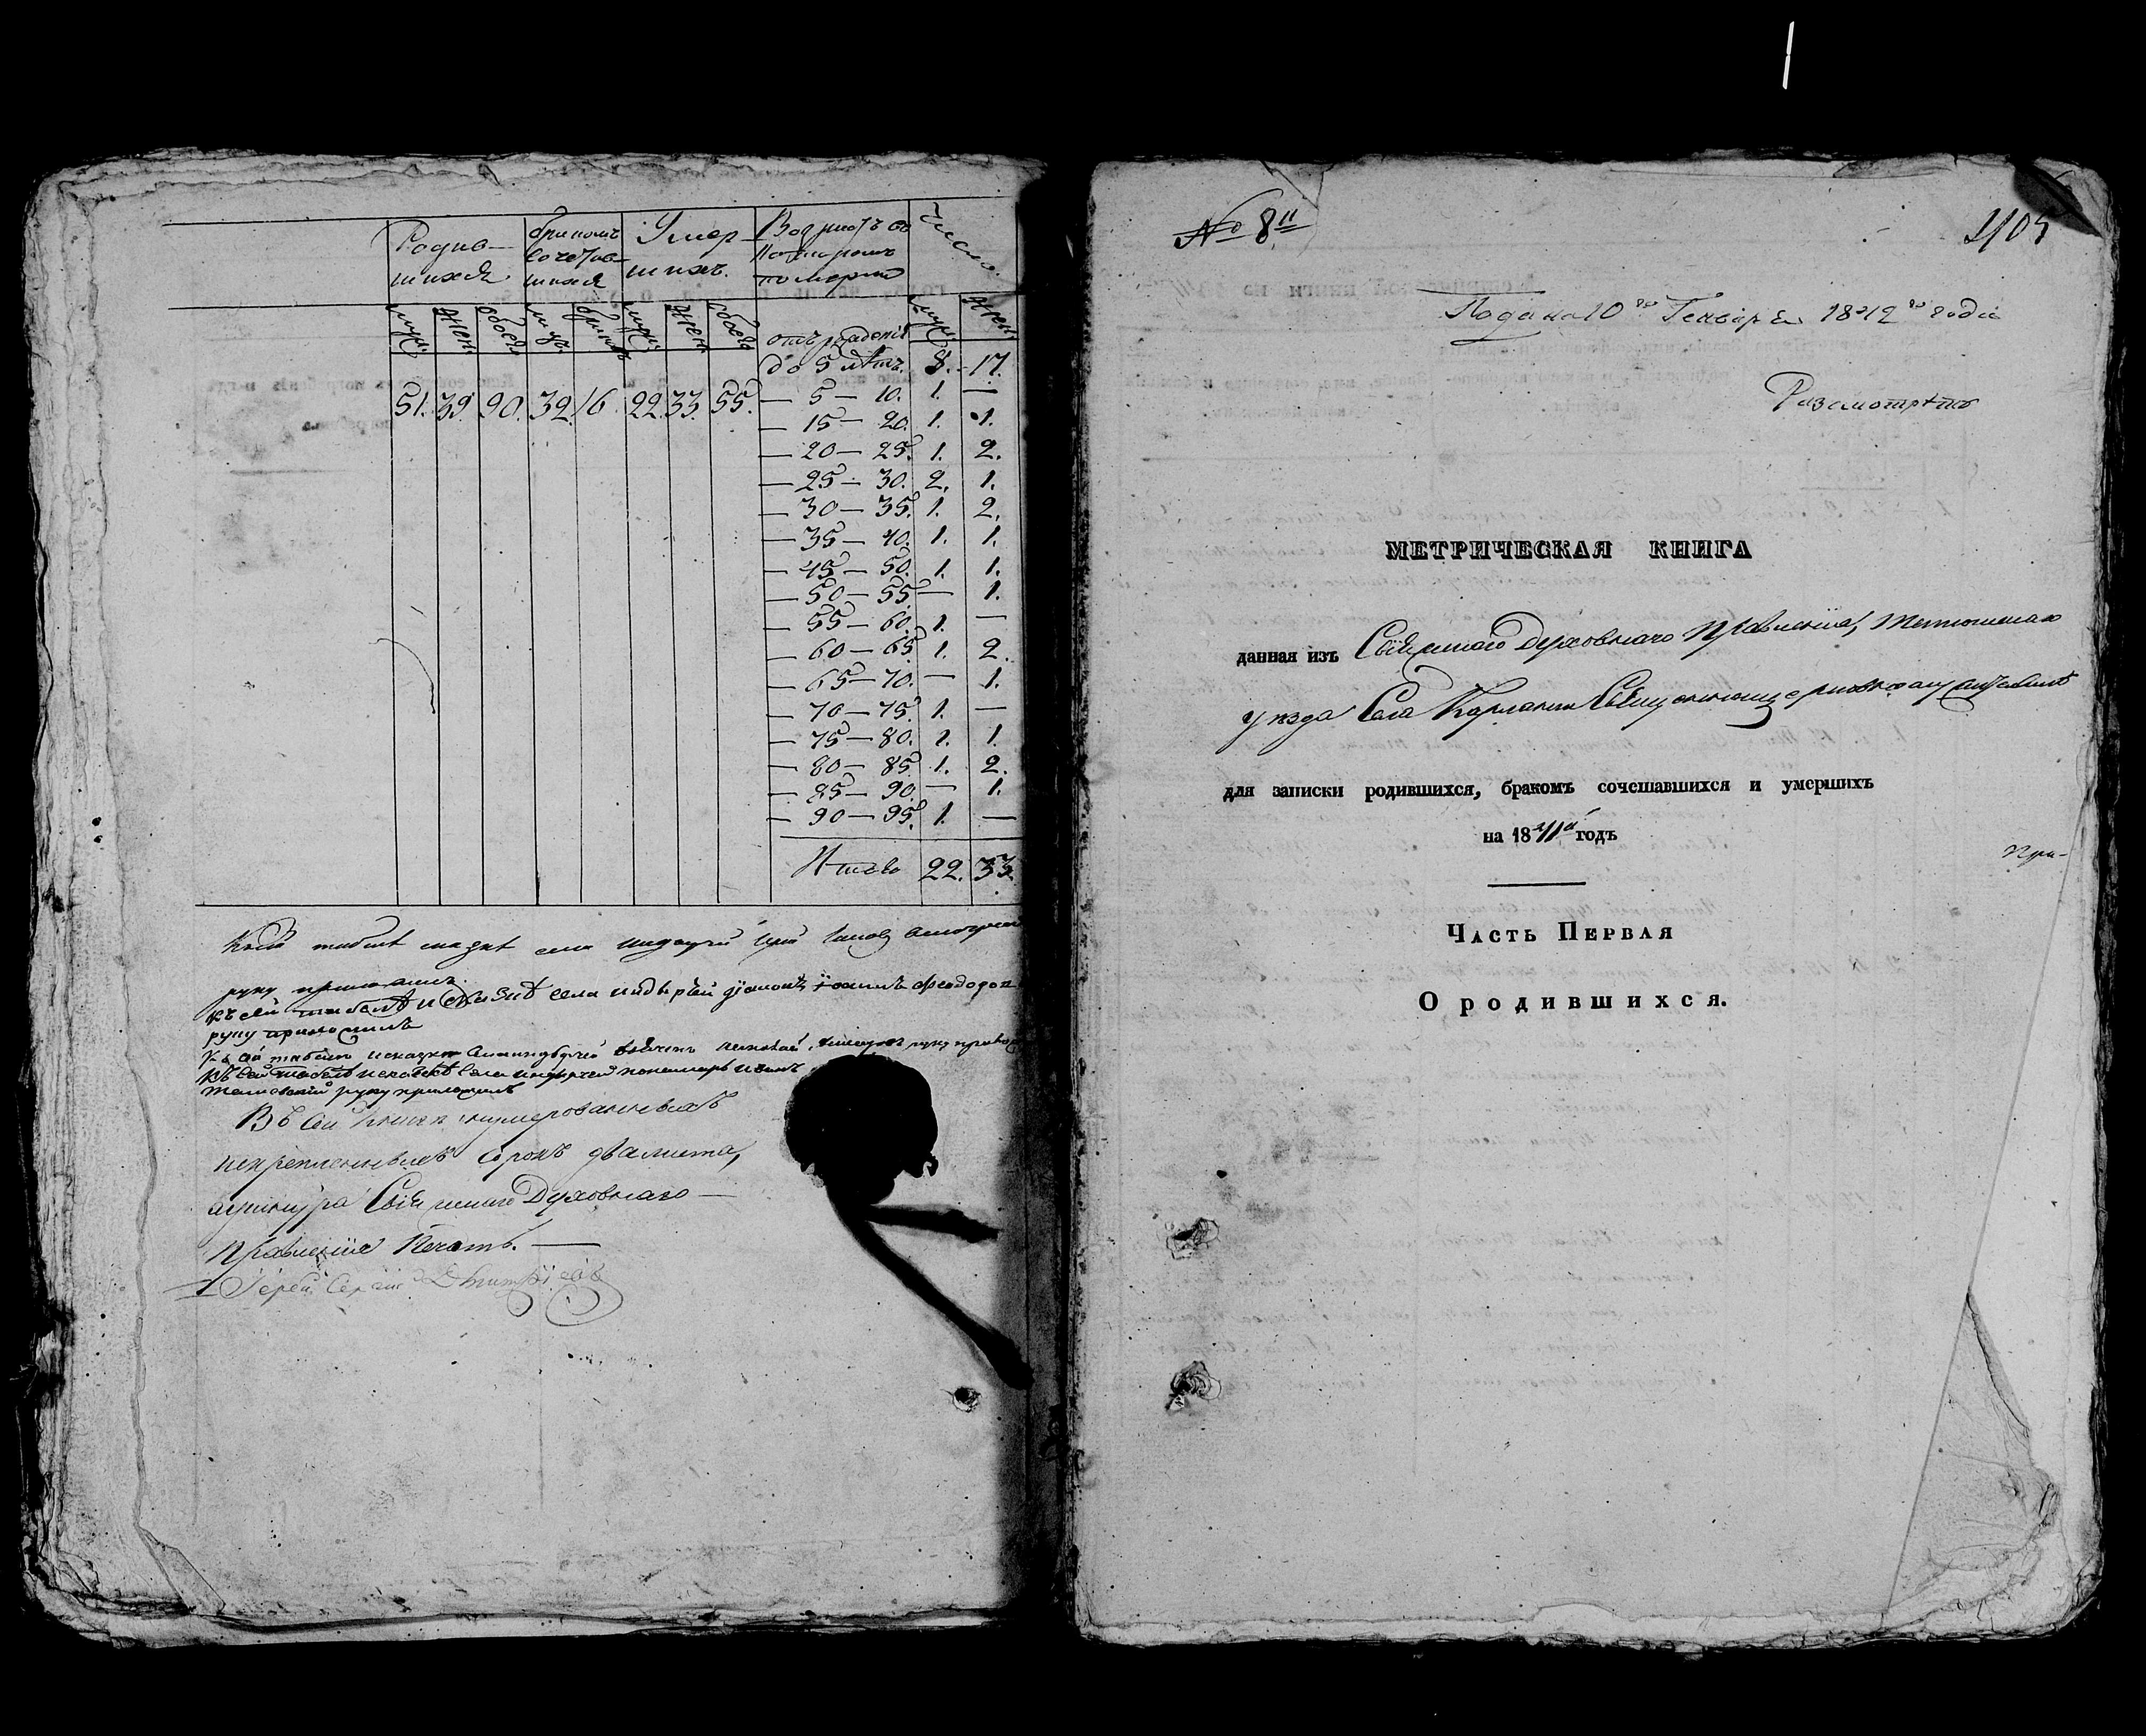 Родив-
шихся
бракомъ
сочетав-
шихся
Умер-
шихъ.
Возрастъ въ
которомъ
померли
Число.
муж. жен. обоего муж. браковъ муж. жен. обоего муж. жен.
отъ рожденія
до 5 лѣтъ. 8. 17.
51. 39. 90. 32. 16. 22. 33. 55.
— 5 — 10. 1. —
— 15 — 20. 1. 1.
— 20 — 25. 1. 2.
— 25 — 30. 2. 1.
— 30 — 35. 1. 2.
— 35 — 40. 1. 1.
— 45 — 50. 1. 1.
— 50 — 55 — 1.
— 55 — 60. 1. —
— 60 — 65 1. 2.
— 65 — 70. — 1.
— 70 — 75. 1. —
— 75 — 80. 1. 1.
— 80 — 85. 1. 2.
— 85 — 90. — 1.
— 90 — 95. 1. —
Итого 22. 33.
руку приложилъ.
къ сей табелѣ и села діаконъ
руку приложилъ
къ сей табели села
къ сей табели села пономарь
руку приложилъ
Въ сей книгѣ нумерованныхъ
и скрепленныхъ сорокъ два листа,
а у шнура Свіяжскаго Духовнаго —
Правленія Печать. —
Іерей Сергій Дмитріевъ
№ 8й
405
Подана 10го Генваря 1842го года
Разсмотрѣть
МЕТРИЧЕСКАЯ КНИГА
данная изъ Свіяжскаго Духовнаго Правленія, Тетюшскаго
уѣзда Села Священноцерковнослужителямъ
для записки родившихся, бракомъ сочетавшихся и умершихъ
на 1841й годъ
При-
Часть Первая
О родившихся.